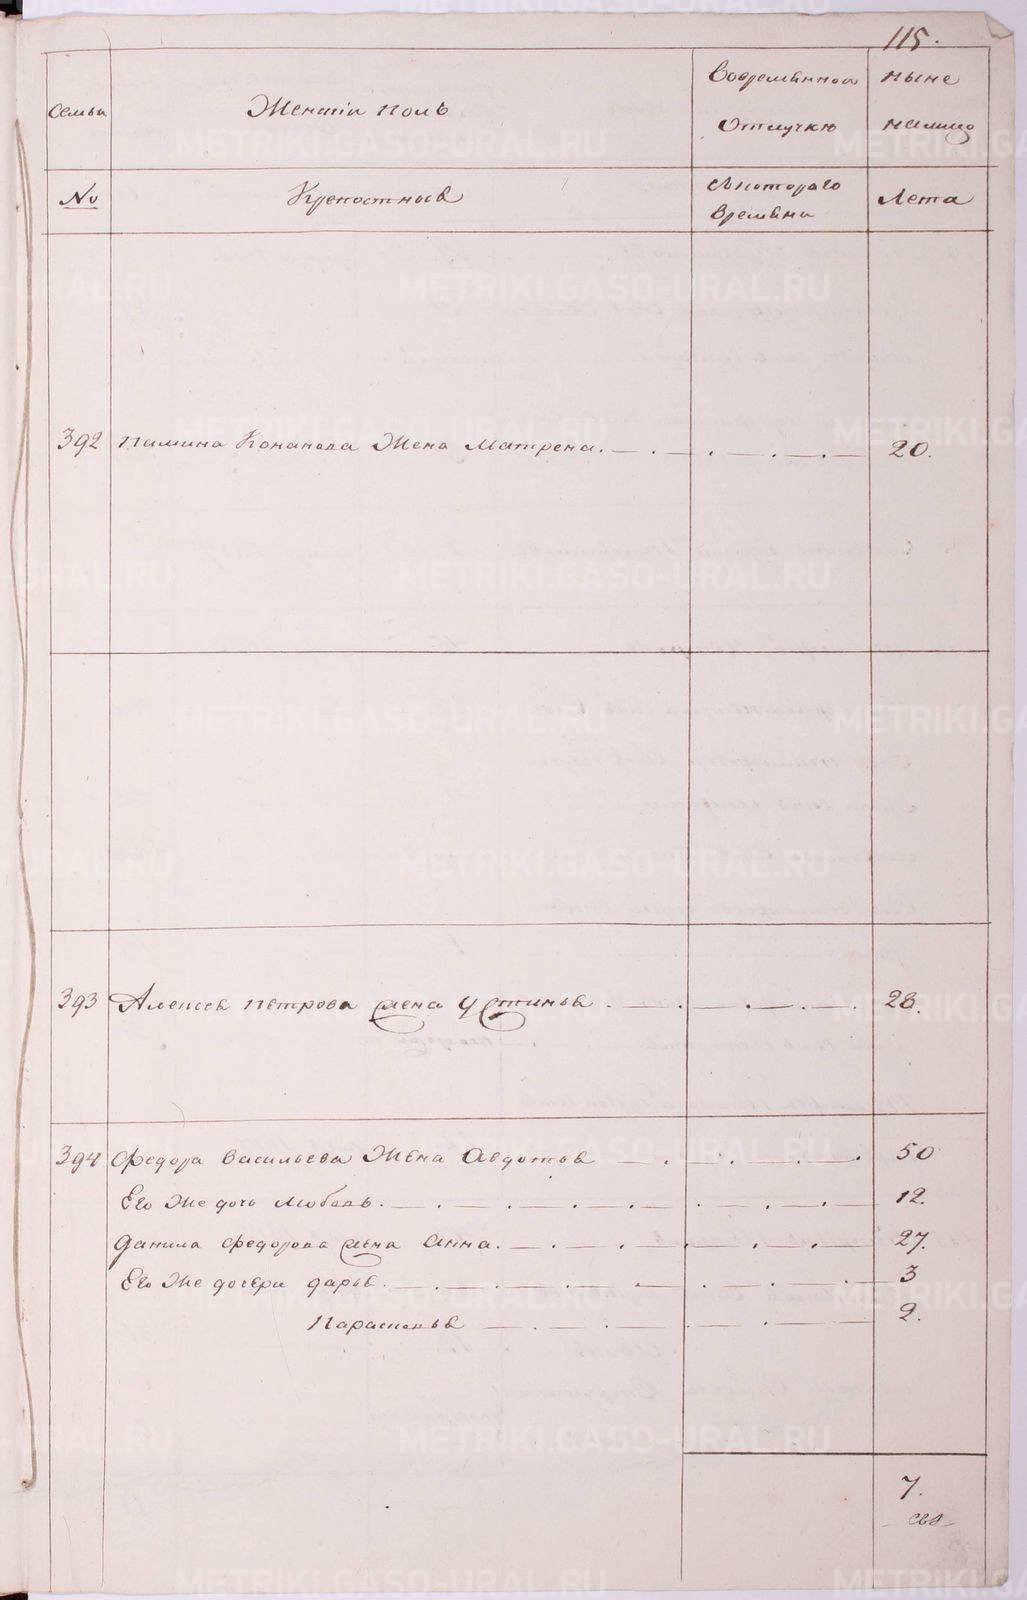 115.
Семьи
Женскiй полъ
Вовременной
отлучке
ныне
налицо
№
Крепостные
Скотораго
времени
Лета
392 Пимина Кононова Жена Матрена. 20.
393 Алексея Петрова жена Устинья. 28.
394 Федора Васильева Жена Авдотья 50
Его Же дочь Любовь. 12.
Данила Федорова жена Анна. 27.
Его Же дочери Дарья. 3
Парасковья 2.
7.
METRIKI.GASO-URAL.RU